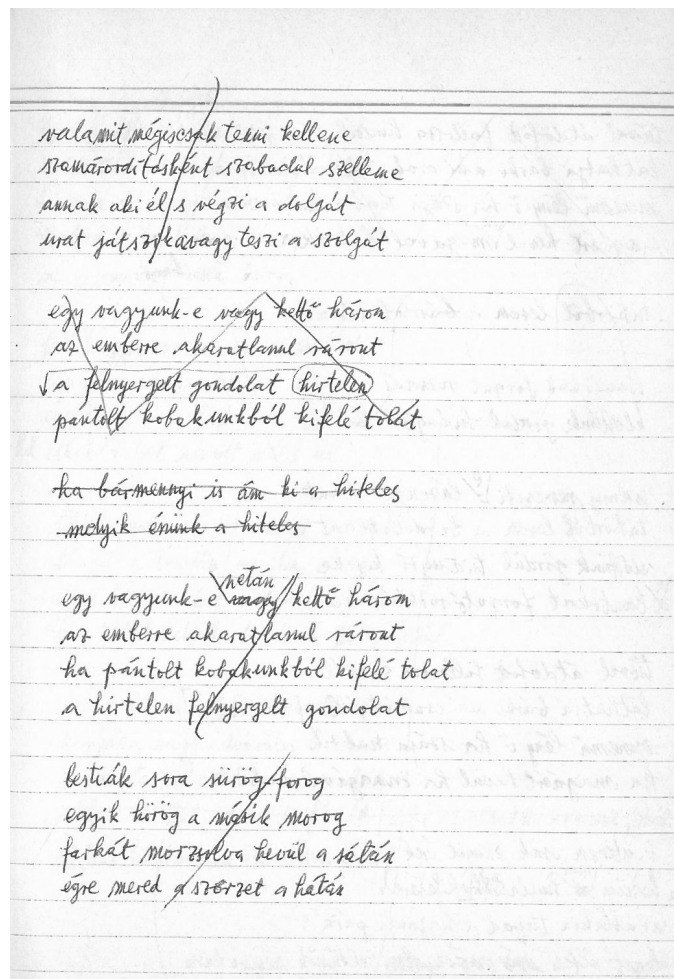 valamit mégiscsak tenni kellene
szamárordításként szabadul szelleme
annak aki él s végzi a dolgát
urat játszik avagy teszi a szolgát
egy vagyunk-e vagy kettő három
az emberre akaratlanul ráront
√ a felnyergelt gondolat hirtelen
pántolt kobakunkból kifelé tolat
ha bármennyi is ám ki a hiteles
melyik énünk a hiteles
netán
egy vagyunk-e vagy kettő három
az emberre akaratlanul ráront
ha pántolt kobakunkból kifelé tolat
a hirtelen felnyergelt gondolat
bestiák sora sürög-forog
egyik hörög a másik morog
farkát morzsolva hevül a sátán
égre mered a szőrzet a hátán